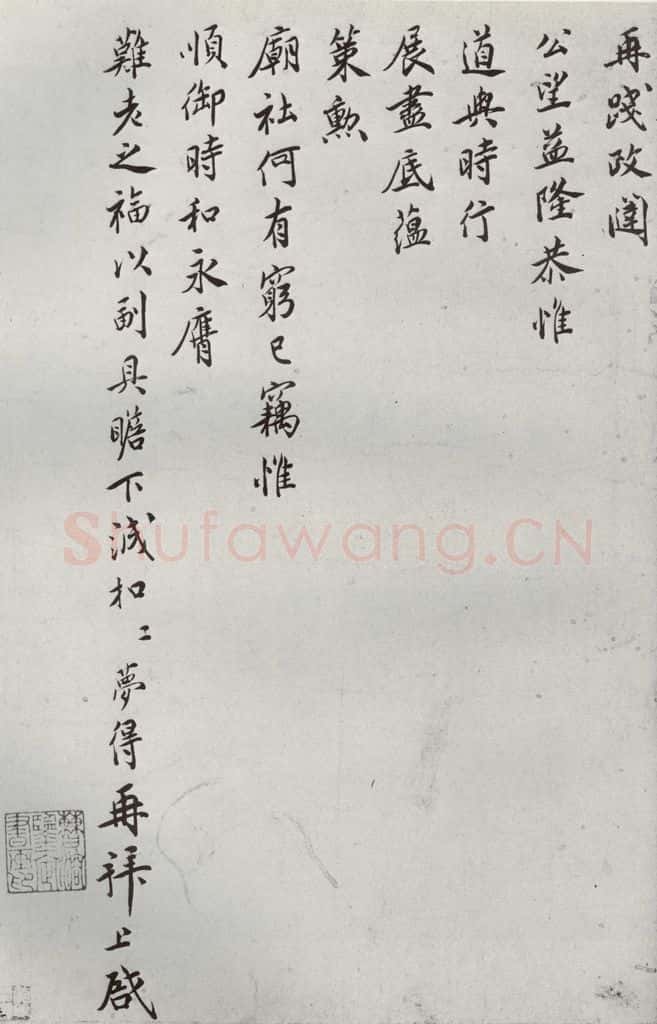 再踐政闈
公望益隆恭惟
道與時行
展盡底蘊
策勳
廟社何有窮已竊惟
順御時和永膺
難老之福以副具瞻下誠扣〻夢得再拜上啟
Shufawang.CN